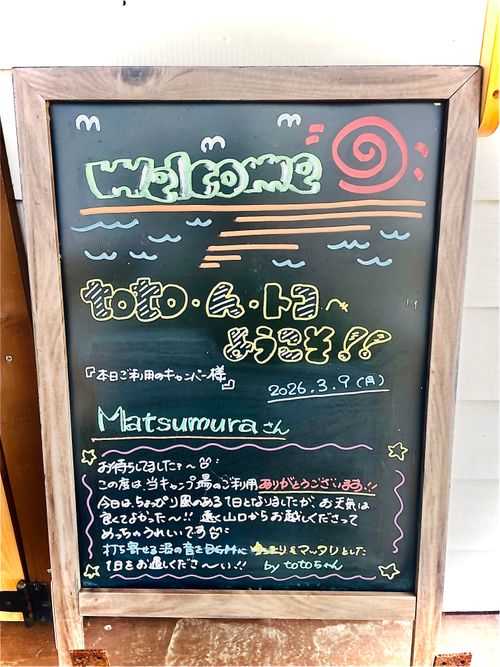 welcome
toto・ん・トコ〜
ようこそ!!
『本日ご利用のキャンパー様』
2026.3.9(月)
Matsumuraさん
お待ちしてました〜
この度は当キャンプ場のご利用ありがとうございます!!
今日はちょっぴり風のある1日となりましたが、お天気は
良くてよかった〜!! 遠く山口からお越しくださって
めっちゃうれしいです
打ち寄せる沼の音をBGMに まったりとした
1日をお過しくださ〜い!! by totoちゃん